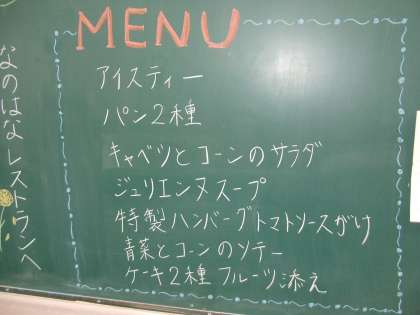 MENU
アイスティー
パン2種
キャベツとコーンのサラダ
ジュリエンヌスープ
特製ハンバーグトマトソースがけ
青菜とコーンのソテー
ケーキ2種 フルーツ添え
なのはなレストランへ